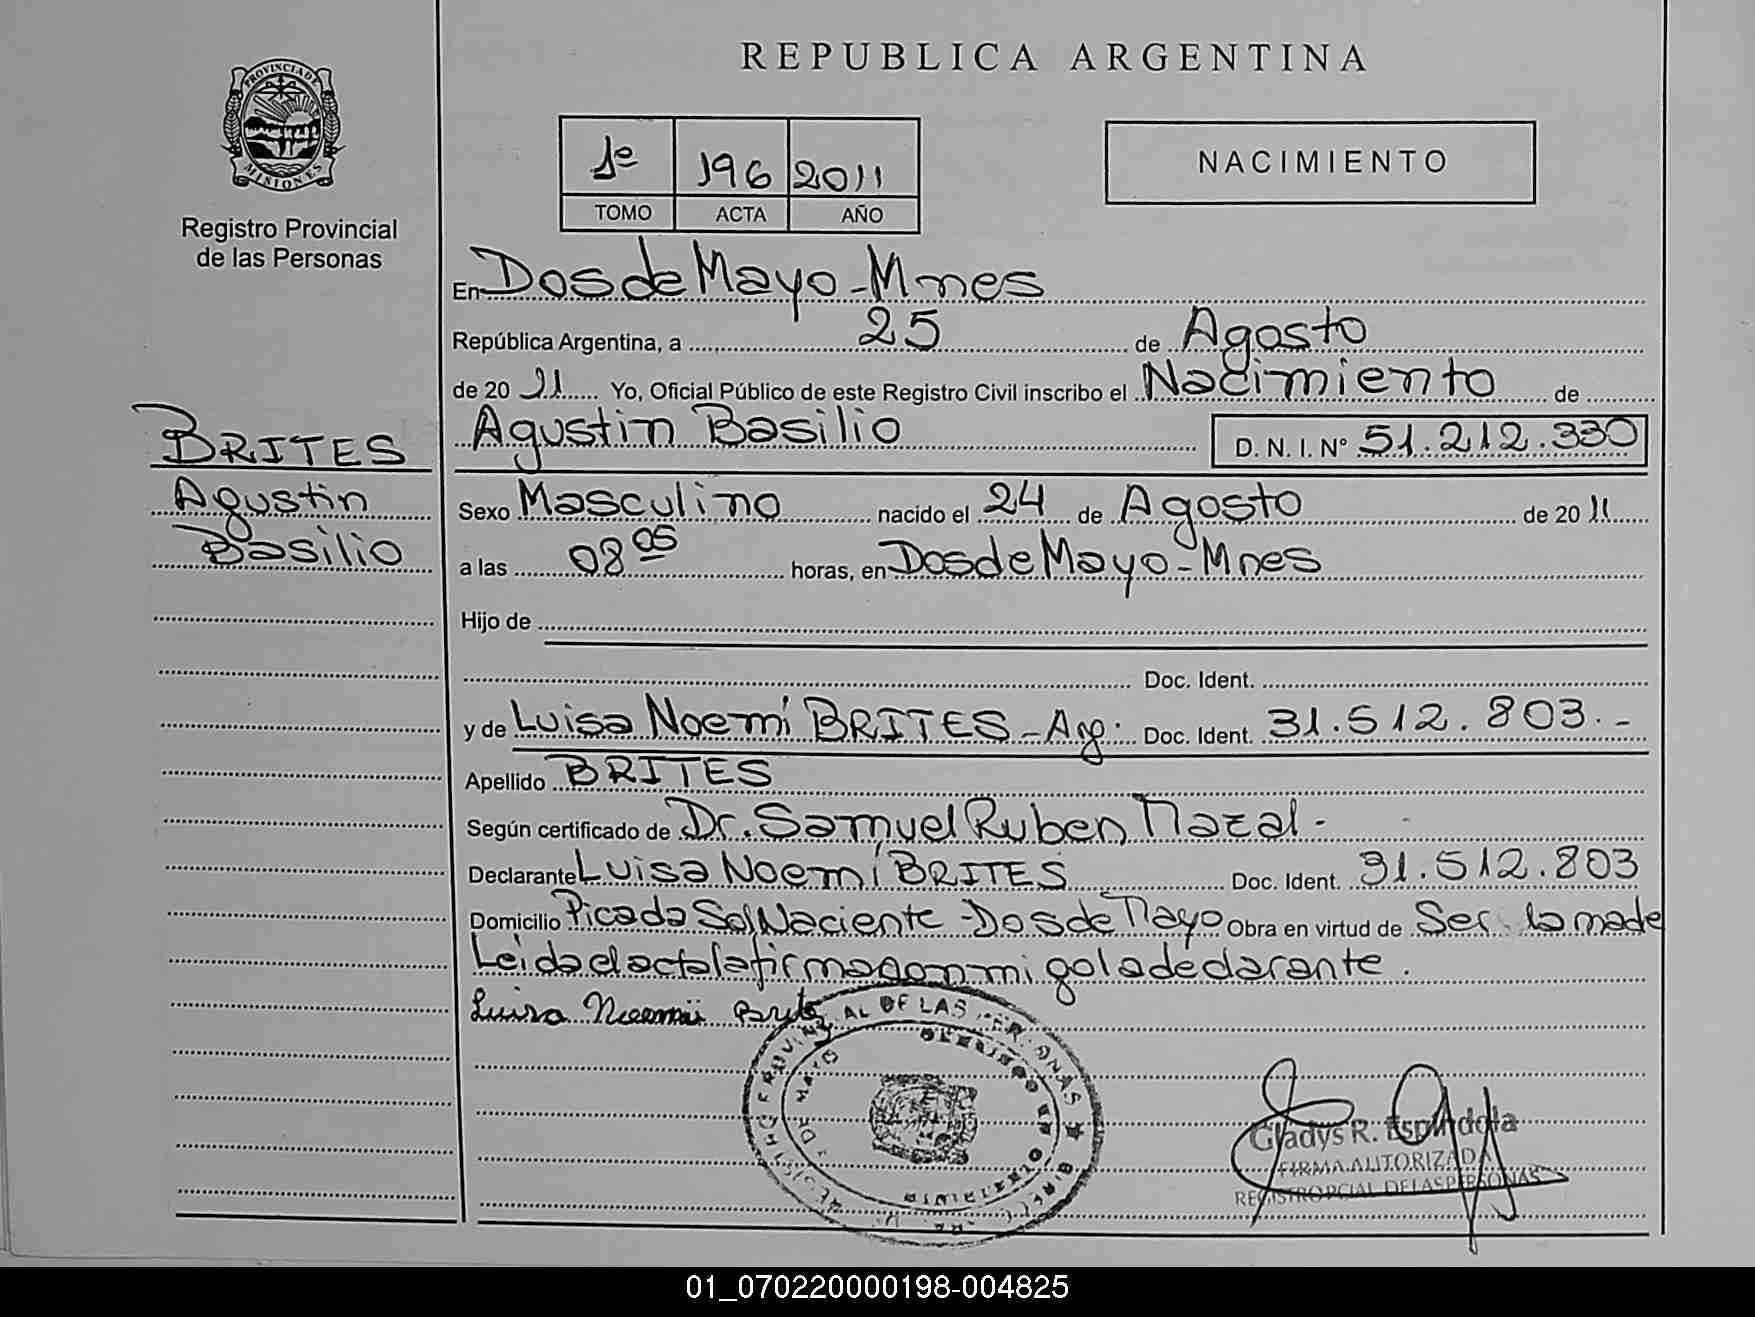 REPUBLICA ARGENTINA
PROVINCIA DE
MISIONES
Registro Provincial
de las Personas
1º 196 2011
TOMO ACTA AÑO
NACIMIENTO
En Dos de Mayo - Mnes
República Argentina, a 25 de Agosto
de 20 11 Yo, Oficial Público de este Registro Civil inscribo el Nacimiento de
Agustin Basilio D. N. I. Nº 51.212.330
BRITES
Agustin
Basilio
Sexo Masculino nacido el 24 de Agosto de 20 11
a las 08 05 horas, en Dos de Mayo - Mnes
Hijo de
Doc. Ident.
y de Luisa Noemí BRITES - Arg. Doc. Ident. 31.512.803.-
Apellido BRITES
Según certificado de Dr. Samuel Ruben Mazal -
Declarante Luisa Noemí BRITES Doc. Ident. 31.512.803
Domicilio Picada Sol Naciente - Dos de Mayo Obra en virtud de Ser la made
Leida el acta la firma conmigo la declarante.
Luisa Noemi
DE LAS
DE MAYO
Gladys R. Espindola
FIRMA AUTORIZADA
REGISTRO PCIAL. DE LAS PERSONAS
01_070220000198-004825